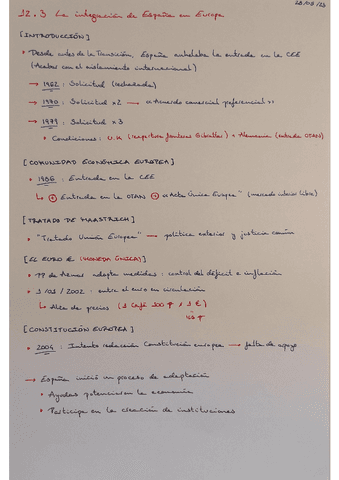 28/03/23
12.3 La integración de España en Europa
[INTRODUCCIÓN]
• Desde antes de la Transición, España anhelaba la entrada en la CEE
(Acabar con el aislamiento internacional)
→ 1962: Solicitud (rechazada)
→ 1970: Solicitud x2 → "Acuerdo comercial preferencial"
→ 1979: Solicitud x3
• Condiciones: U.K (reapertura fronteras Gibraltar) + Alemania (entrada OTAN)
[COMUNIDAD ECONÓMICA EUROPEA]
• 1986: Entrada en la CEE
↳ ⊕ Entrada en la OTAN ⊕ "Acta Única Europea" (mercado interior libre)
[TRATADO DE MAASTRICH]
• "Tratado Unión Europea" → política exterior y justicia común
[EL EURO € (MONEDA ÚNICA)]
• Pº de Aznar adopta medidas: control del déficit e inflación
• 1/01/2002: entra el euro en circulación
↳ Alza de precios (1 café 100 ₧ x 1 €)
166 ₧
[CONSTITUCIÓN EUROPEA]
• 2004: Intento redacción Constitución europea → falta de apoyo
→ España inició un proceso de adaptación
• Ayudas potenciaron la economía
• Participa en la creación de instituciones